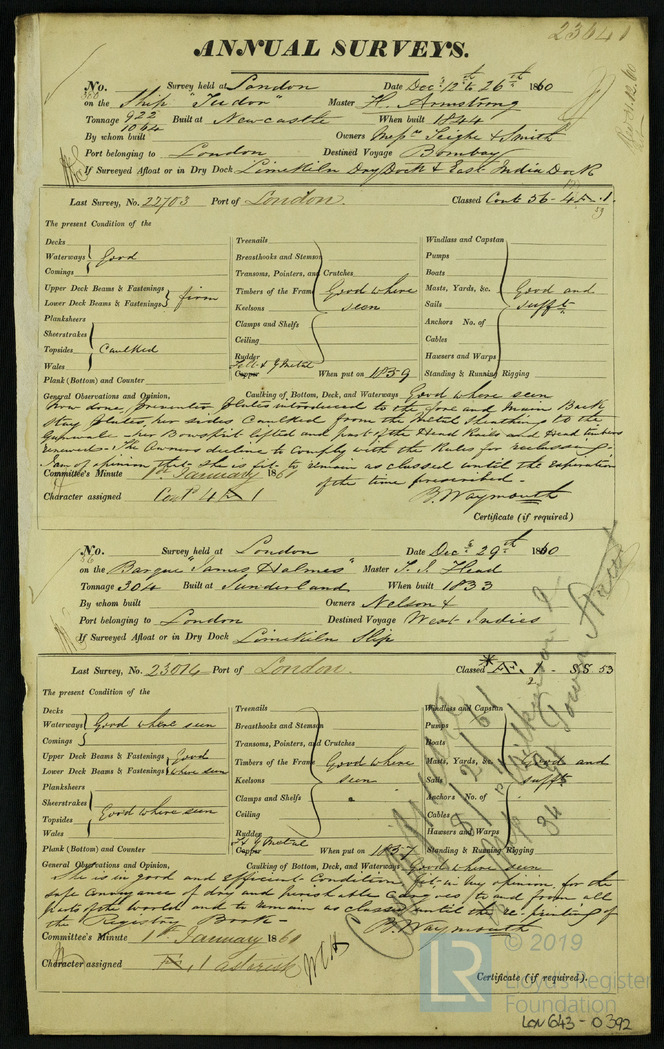 23641
ANNUAL SURVEYS.
No. 560 Survey held at London Date Decr 12th to 26th 1860
on the Ship "Tudor" Master H. Armstrong
Tonnage 922 Built at Newcastle When built 1844
1064
By whom built Owners Messrs Teighe & Smith
Port belonging to London Destined Voyage Bombay
If Surveyed Afloat or in Dry Dock Limekiln Dry Dock & East India Dock
Last Survey, No. 22703 Port of London. Classed Contd 56 - 4 Æ . 1.
59
The present Condition of the
Decks
Waterways Good
Comings
Upper Deck Beams & Fastenings
Lower Deck Beams & Fastenings firm
Planksheers
Sheerstrakes
Topsides Caulked
Wales
Plank (Bottom) and Counter
Treenails
Breasthooks and Stemson
Transoms, Pointers, and Crutches
Timbers of the Frame Good where
Keelsons seen
Clamps and Shelfs
Ceiling
Rudder
Felt & Y Metal
Copper When put on 1859
Windlass and Capstan
Pumps
Boats
Masts, Yards, &c. Good and
Sails sufft
Anchors No. of
Cables
Hawsers and Warps
Standing & Running Rigging
General Observations and Opinion, Caulking of Bottom, Deck, and Waterways Good where seen
Now done, Preventer plates introduced to the fore and main Back
Stay plates, her sides Caulked from the Metal Sheathing to the
Gunwale - her Bowsprit lifted and part of the Head Rails and Head timbers
renewed - The Owners decline to comply with the Rules for reclassing
I am of opinion that she is fit to remain as classed until the expiration
of the time prescribed -
Committee's Minute 1st January 1861
Character assigned Contd 4 Æ 1
B. Waymouth
Certificate (if required)
No. 56 Survey held at London Date Decr 29th 1860
on the Barque "James & Holmes" Master T. J. Head
Tonnage 304 Built at Sunderland When built 1833
By whom built Owners Nelson &
Port belonging to London Destined Voyage West Indies
If Surveyed Afloat or in Dry Dock Limekiln Slip
Last Survey, No. 23016 Port of London. Classed * Æ. 1 - SS 53
The present Condition of the
Decks
Waterways Good where seen
Comings
Upper Deck Beams & Fastenings Good
Lower Deck Beams & Fastenings where seen
Planksheers
Sheerstrakes
Topsides Good where seen
Wales
Plank (Bottom) and Counter
Treenails
Breasthooks and Stemson
Transoms, Pointers, and Crutches
Timbers of the Frame Good where
Keelsons seen
Clamps and Shelfs
Ceiling
Rudder
Y Metal
Copper When put on 1857
Windlass and Capstan
Pumps
Boats
Masts, Yards, &c. Good and
Sails sufft
Anchors No. of
Cables
Hawsers and Warps
Standing & Running Rigging
General Observations and Opinion, Caulking of Bottom, Deck, and Waterways Good where seen
She is in good and efficient Condition fit in my opinion for the
safe conveyance of dry and perishable Cargoes to and from all
parts of the world and to remain as classed until the re-printing of
the Registry Book -
B. Waymouth
Committee's Minute 1st January 1861
Character assigned Æ, 1 asterisk
Certificate (if required).
8/2/61
34
© 2019
LR
Lloyd's Register
Foundation
LON 643 - 0392